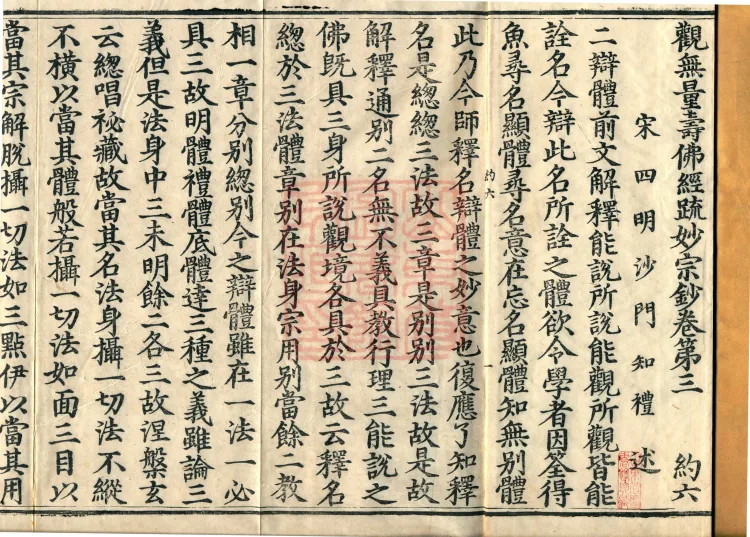 觀無量壽佛經疏妙宗鈔卷第三 約六
宋四明沙門知禮 述
二辯體前文解釋能說所說能觀所觀皆能
詮名今辯此名所詮之體欲令學者因筌得
魚尋名顯體尋名意在忘名顯體知無別體
約六
此乃今師釋名辯體之妙意也復應了知釋
名是總總三法故三章是別別三法故是故
解釋通別二名無不義具教行理三能說之
佛旣具三身所說觀境各具於三故云釋名
總於三法體章別在法身宗用別當餘二教
相一章分別總別今之辯體雖在一法一必
具三故明體禮體底體達三種之義雖論三
義但是法身中三未明餘二各三故涅槃玄
云總唱祕藏故當其名法身攝一切法不縱
不橫以當其體般若攝一切法如面三目以
當其宗解脫攝一切法如三點伊以當其用